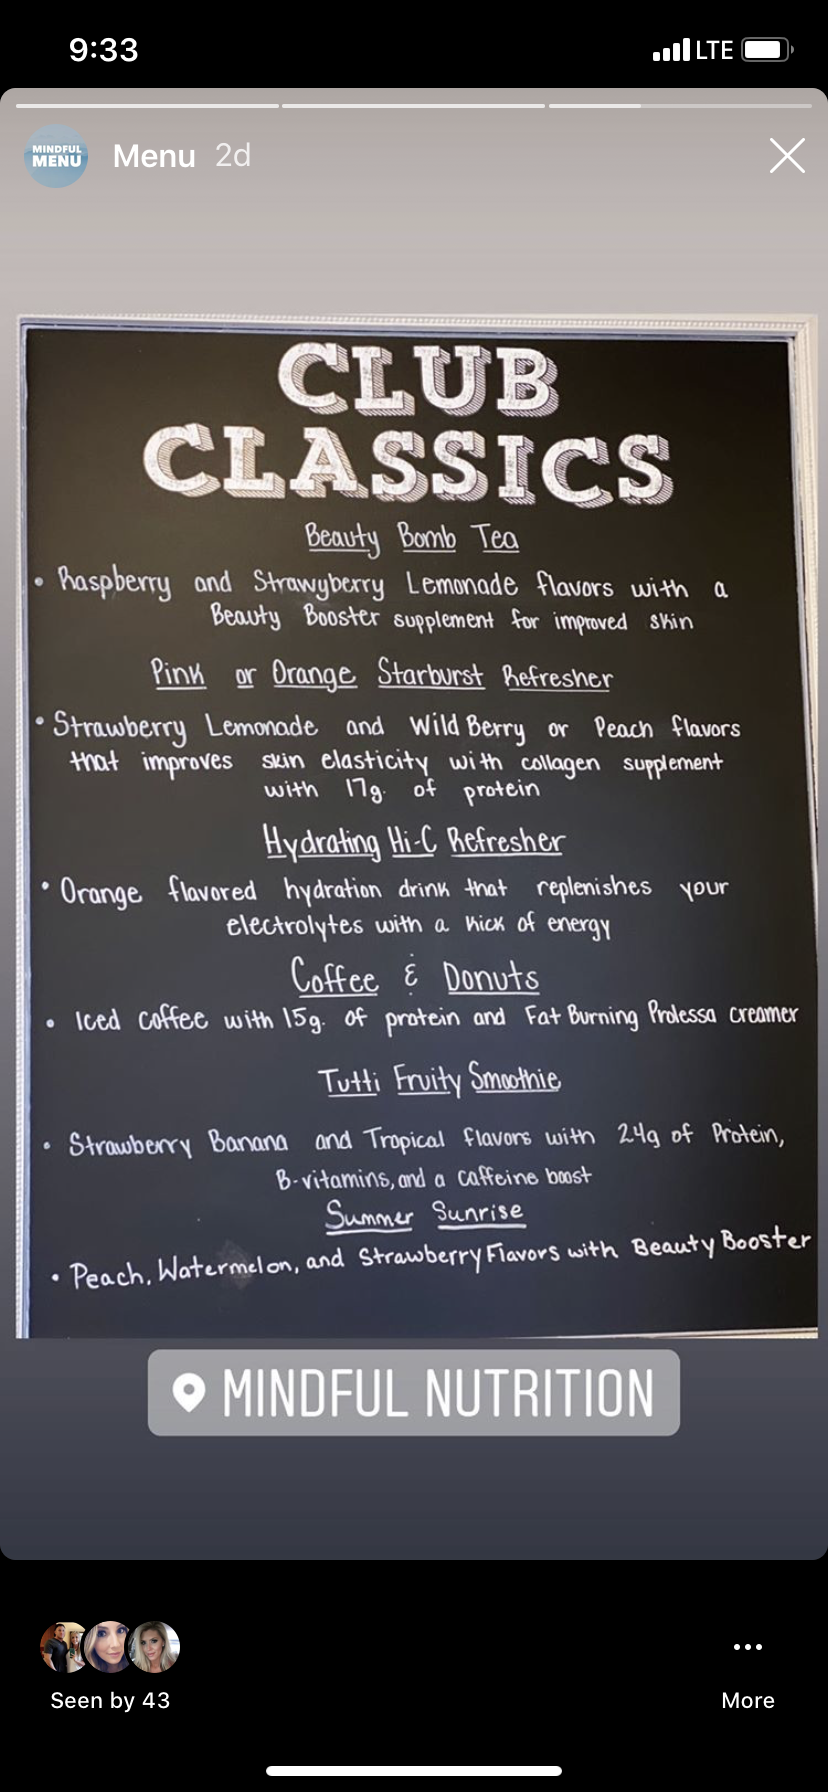 9:33
LTE
MINDFUL
MENU
Menu 2d
CLUB
CLASSICS
Beauty Bomb Tea
• Raspberry and Strawyberry Lemonade flavors with a
Beauty Booster supplement for improved skin
Pink or Orange Starburst Refresher
• Strawberry Lemonade and Wild Berry or Peach flavors
that improves skin elasticity with collagen supplement
with 17g. of protein
Hydrating Hi-C Refresher
• Orange flavored hydration drink that replenishes your
electrolytes with a kick of energy
Coffee & Donuts
• Iced coffee with 15g. of protein and Fat Burning Prolessa creamer
Tutti Fruity Smoothie
• Strawberry Banana and Tropical flavors with 24g of Protein,
B-vitamins, and a caffeine boost
Summer Sunrise
• Peach, Watermelon, and Strawberry Flavors with Beauty Booster
MINDFUL NUTRITION
Seen by 43
More